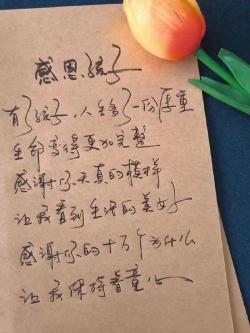 感恩孩子
有了孩子,人生多了一份厚重
生命变得更加完整
感谢你天真的模样
让我看到生活的美好
感谢你的十万个为什么
让我保持着童心